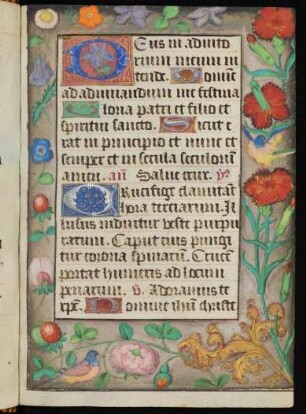 Deus in adiuto
rium meum in
tende. Domine
ad adiuuandum me festina
Gloria patri et filio et
spiritui sancto. Sicut e
rat in principio et nunc et
semper et in secula seculorū
amen. añ. Salue crux. ys
Crucifige clamitāt
hora terciarum. Il
lusus induitur veste purpu
ratum. Caput eius pungi
tur corona spinarum. Crucē
portat humeris ad locum
penarum. v. Adoramus te
xpē. Domine ihū christe